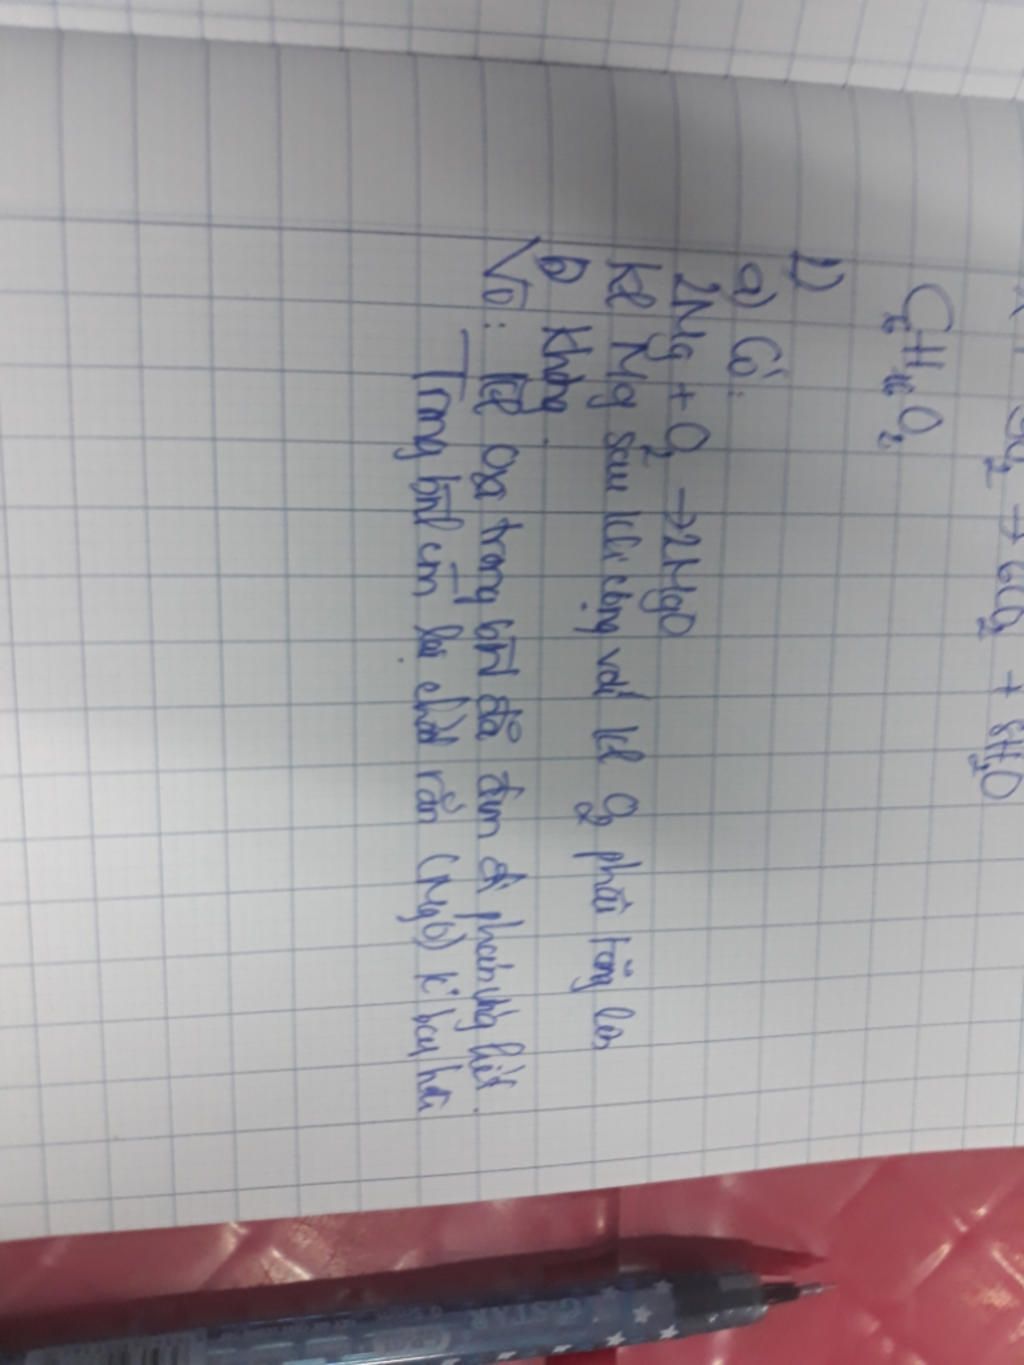 O₂ → 6CO₂ + 8H₂O
C₆H₁₆O₂
1)
a) Có:
2Mg + O₂ → 2MgO
kl Mg sau khi cộng với kl O₂ phải tăng lên
b) Không.
Vì: kl oxi trong bình đã đun đi phản ứng hết.
Trong bình còn lại chất rắn (MgO) k bay hơi
G-STAR